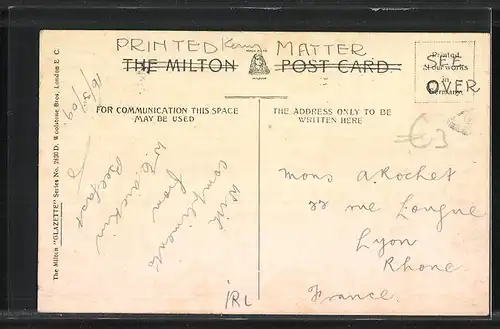 PRINTED MATTER
THE MILTON POST CARD.
Printed
at our works
in
Germany
SEE
OVER
FOR COMMUNICATION THIS SPACE
MAY BE USED
THE ADDRESS ONLY TO BE
WRITTEN HERE
The Milton "GLAZETTE" Series No. Woolstone Bros. London E. C.
With
Compliments
from
Belfast
€3
Mons A Rochet
rue Longue
Lyon
Rhone.
France.
IRL